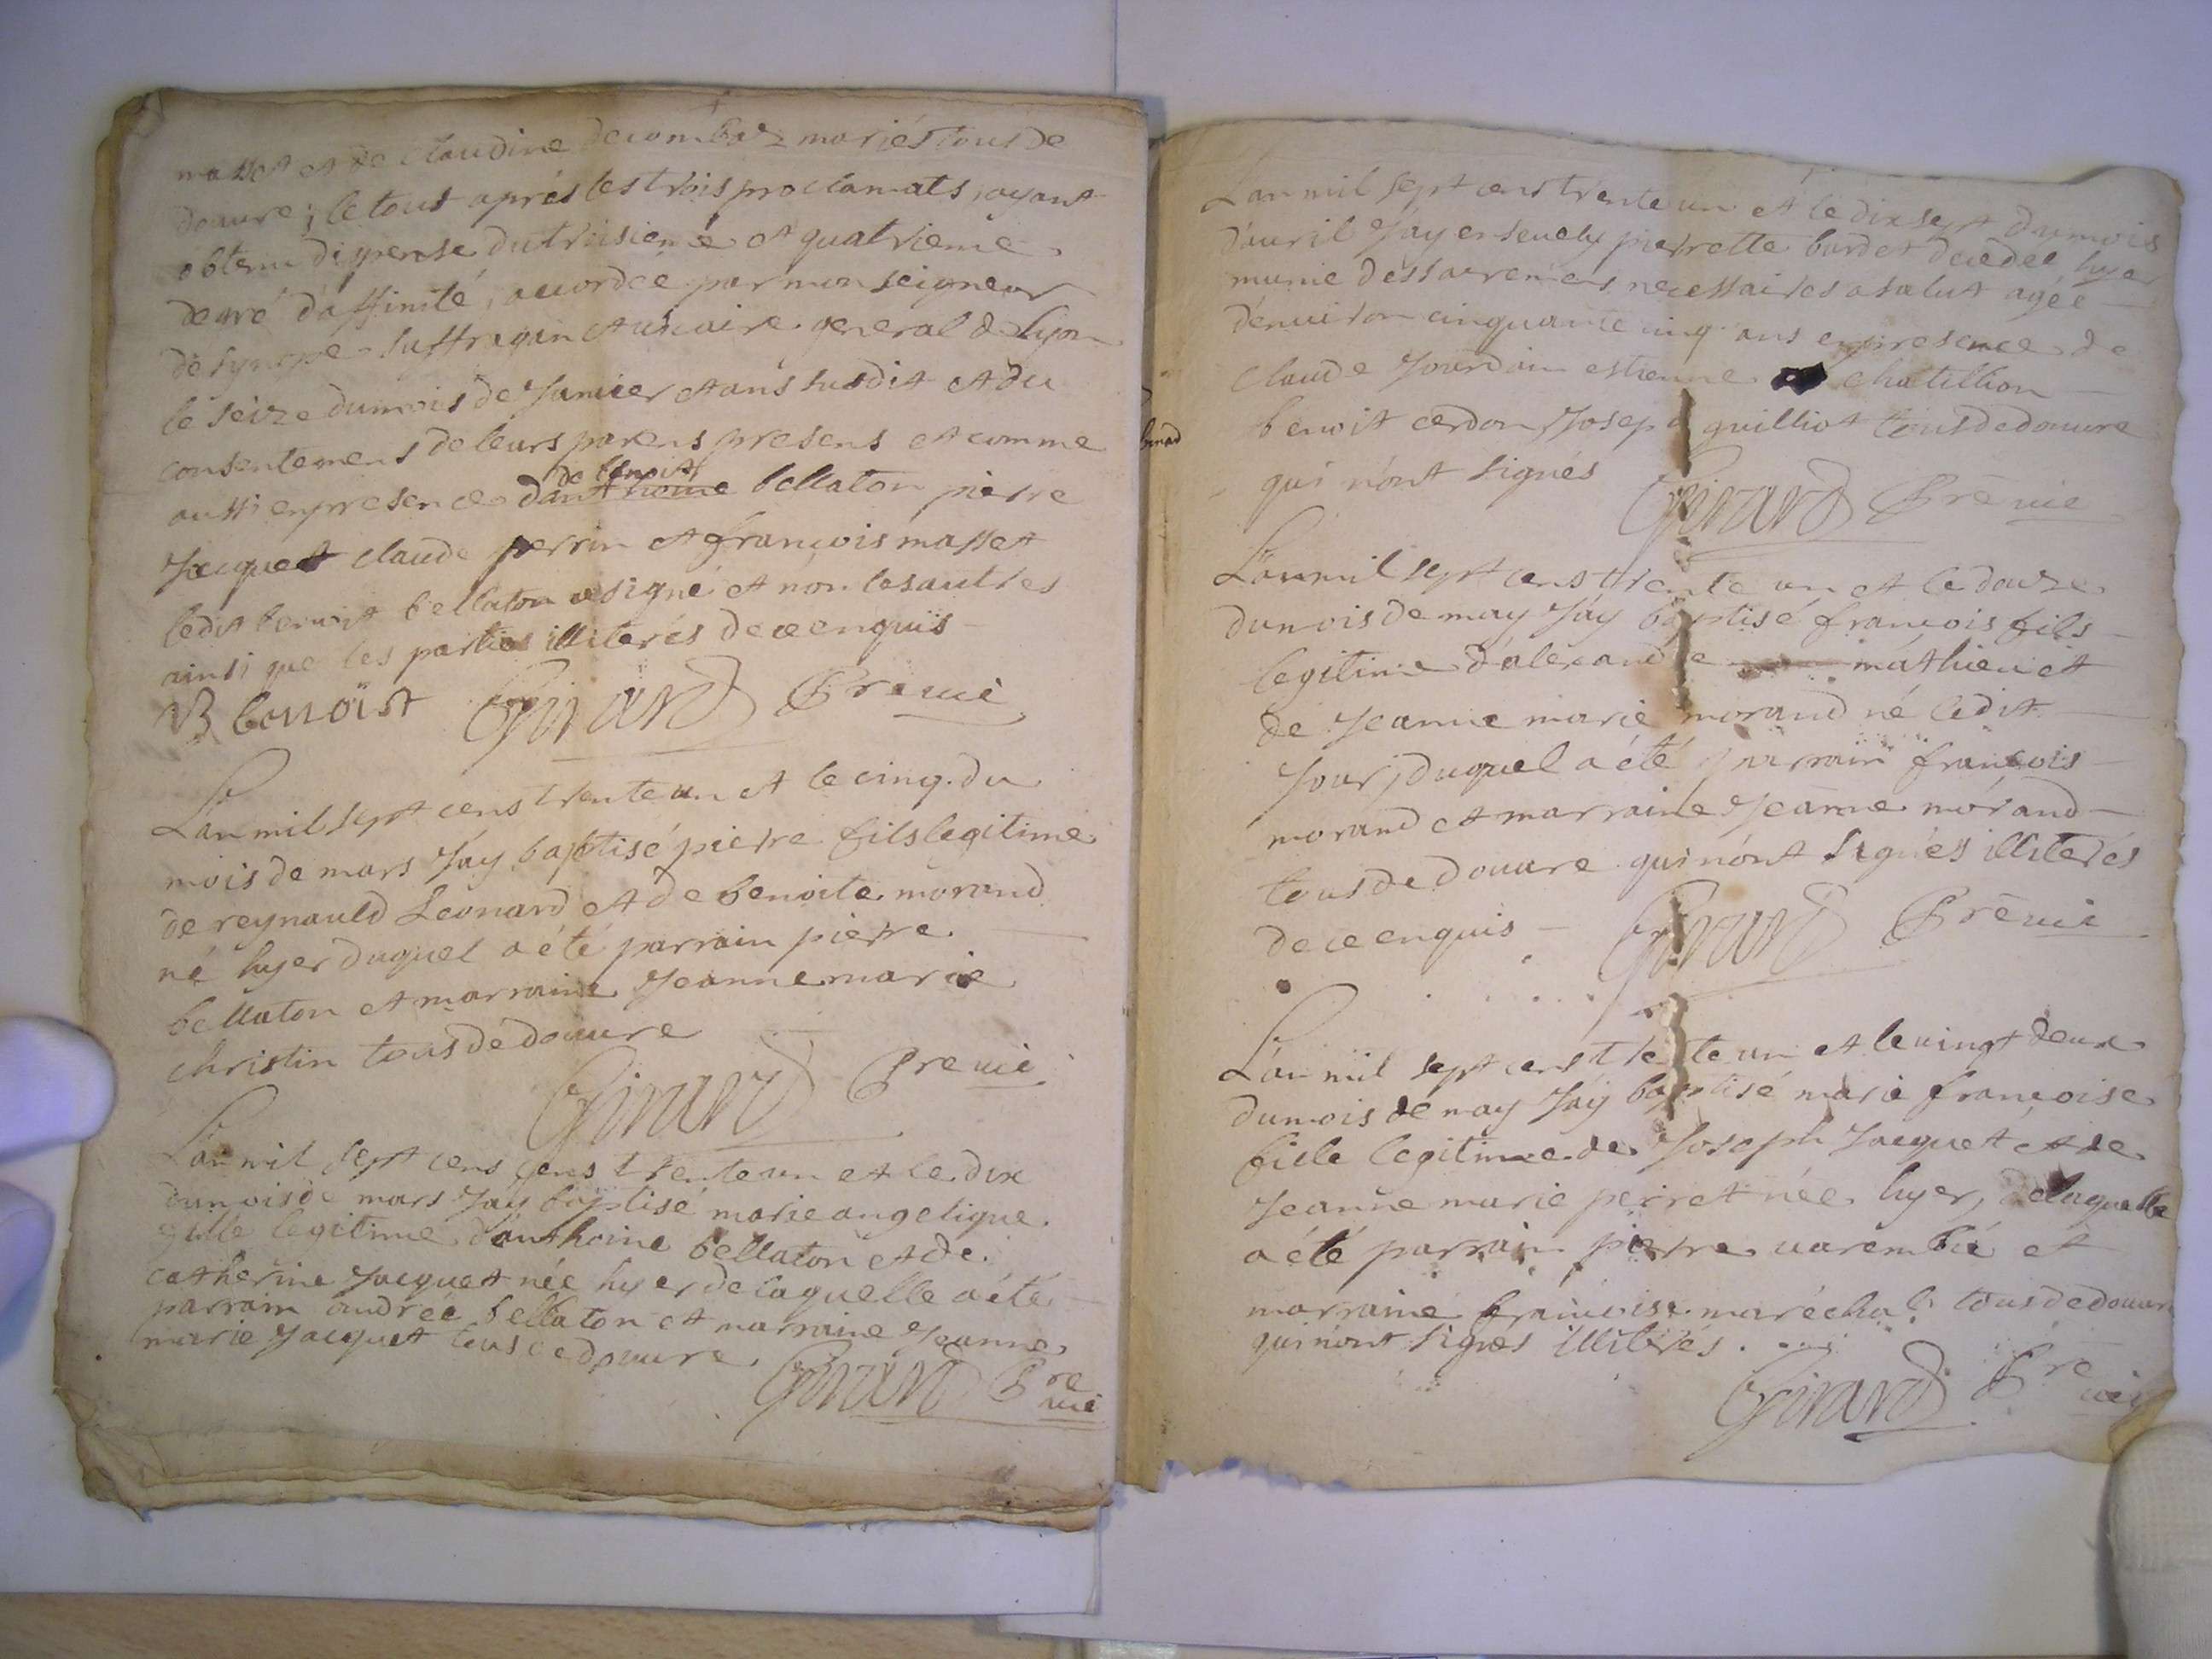 masset et de claudine decombaz mariés tous de
douure ; le tout aprés les trois proclamats, ayant
obtenu dispense du troisieme et quatrieme
degré d'affinité, accordée par monseigneur
de synope suffragan et vicaire general de lyon
le seize du mois de Janvier et ans susdit et du
consentement de leurs parens presens et comme
aussi en presence d'anthoine de benoit bellaton pierre
Jacquet claude perrin et françois masset
ledit benoit bellaton a signé et non les autres
ainsi que les parties illiterés de ce enquis
B benoist Girard Prē vic
L'an mil sept cens trente un et le cinq du
mois de mars J'ay baptisé pierre fils legitime
de reynauld Leonard et de benoite morand
né hyer duquel a été parrain pierre
bellaton et marraine Jeanne marie
christin tous de douure
Girard Pre vic
L'an mil sept cens cens trente un et le dix
du mois de mars J'ay baptisé marie angelique
fille legitime d'anthoine bellaton et de
catherine Jacquet née hyer de laquelle a été
parrain andrée bellaton et marraine Jeanne
marie Jacquet tous de douure
Girard Pre vic
L'an mil sept cens trente un et le dix sept du mois
d'avril J'ay ensevely pierrette bardet decedee hyer
munie des sacremens necessaires a salut agée
d'environ cinquante cinq ans en presence de
claude Jourdain estienne chatillion
benoit cerdon Joseph guilliot tous de douure
qui n'ont signés Girard Prē vic
L'an mil sept cens trente un et le douze
du mois de may J'ay baptisé françois fils
legitime d'alexandre mathieu et
de Jeanne marie morand né ledit
Jour, duquel a été parrain françois
morand et marraine Jeanne morand
tous de douure qui n'ont signés illiterés
de ce enquis Girard Prē vic
L'an mil sept cens trente un et le vingt deux
du mois de may J'ay baptisé marie françoise
fille legitime de Joseph Jacquet et de
Jeanne marie perret née hyer, de laquelle
a été parrain pierre varembié et
marraine françoise maréchal tous de douure
qui n'ont signés illiterés.
Girard Pre vic